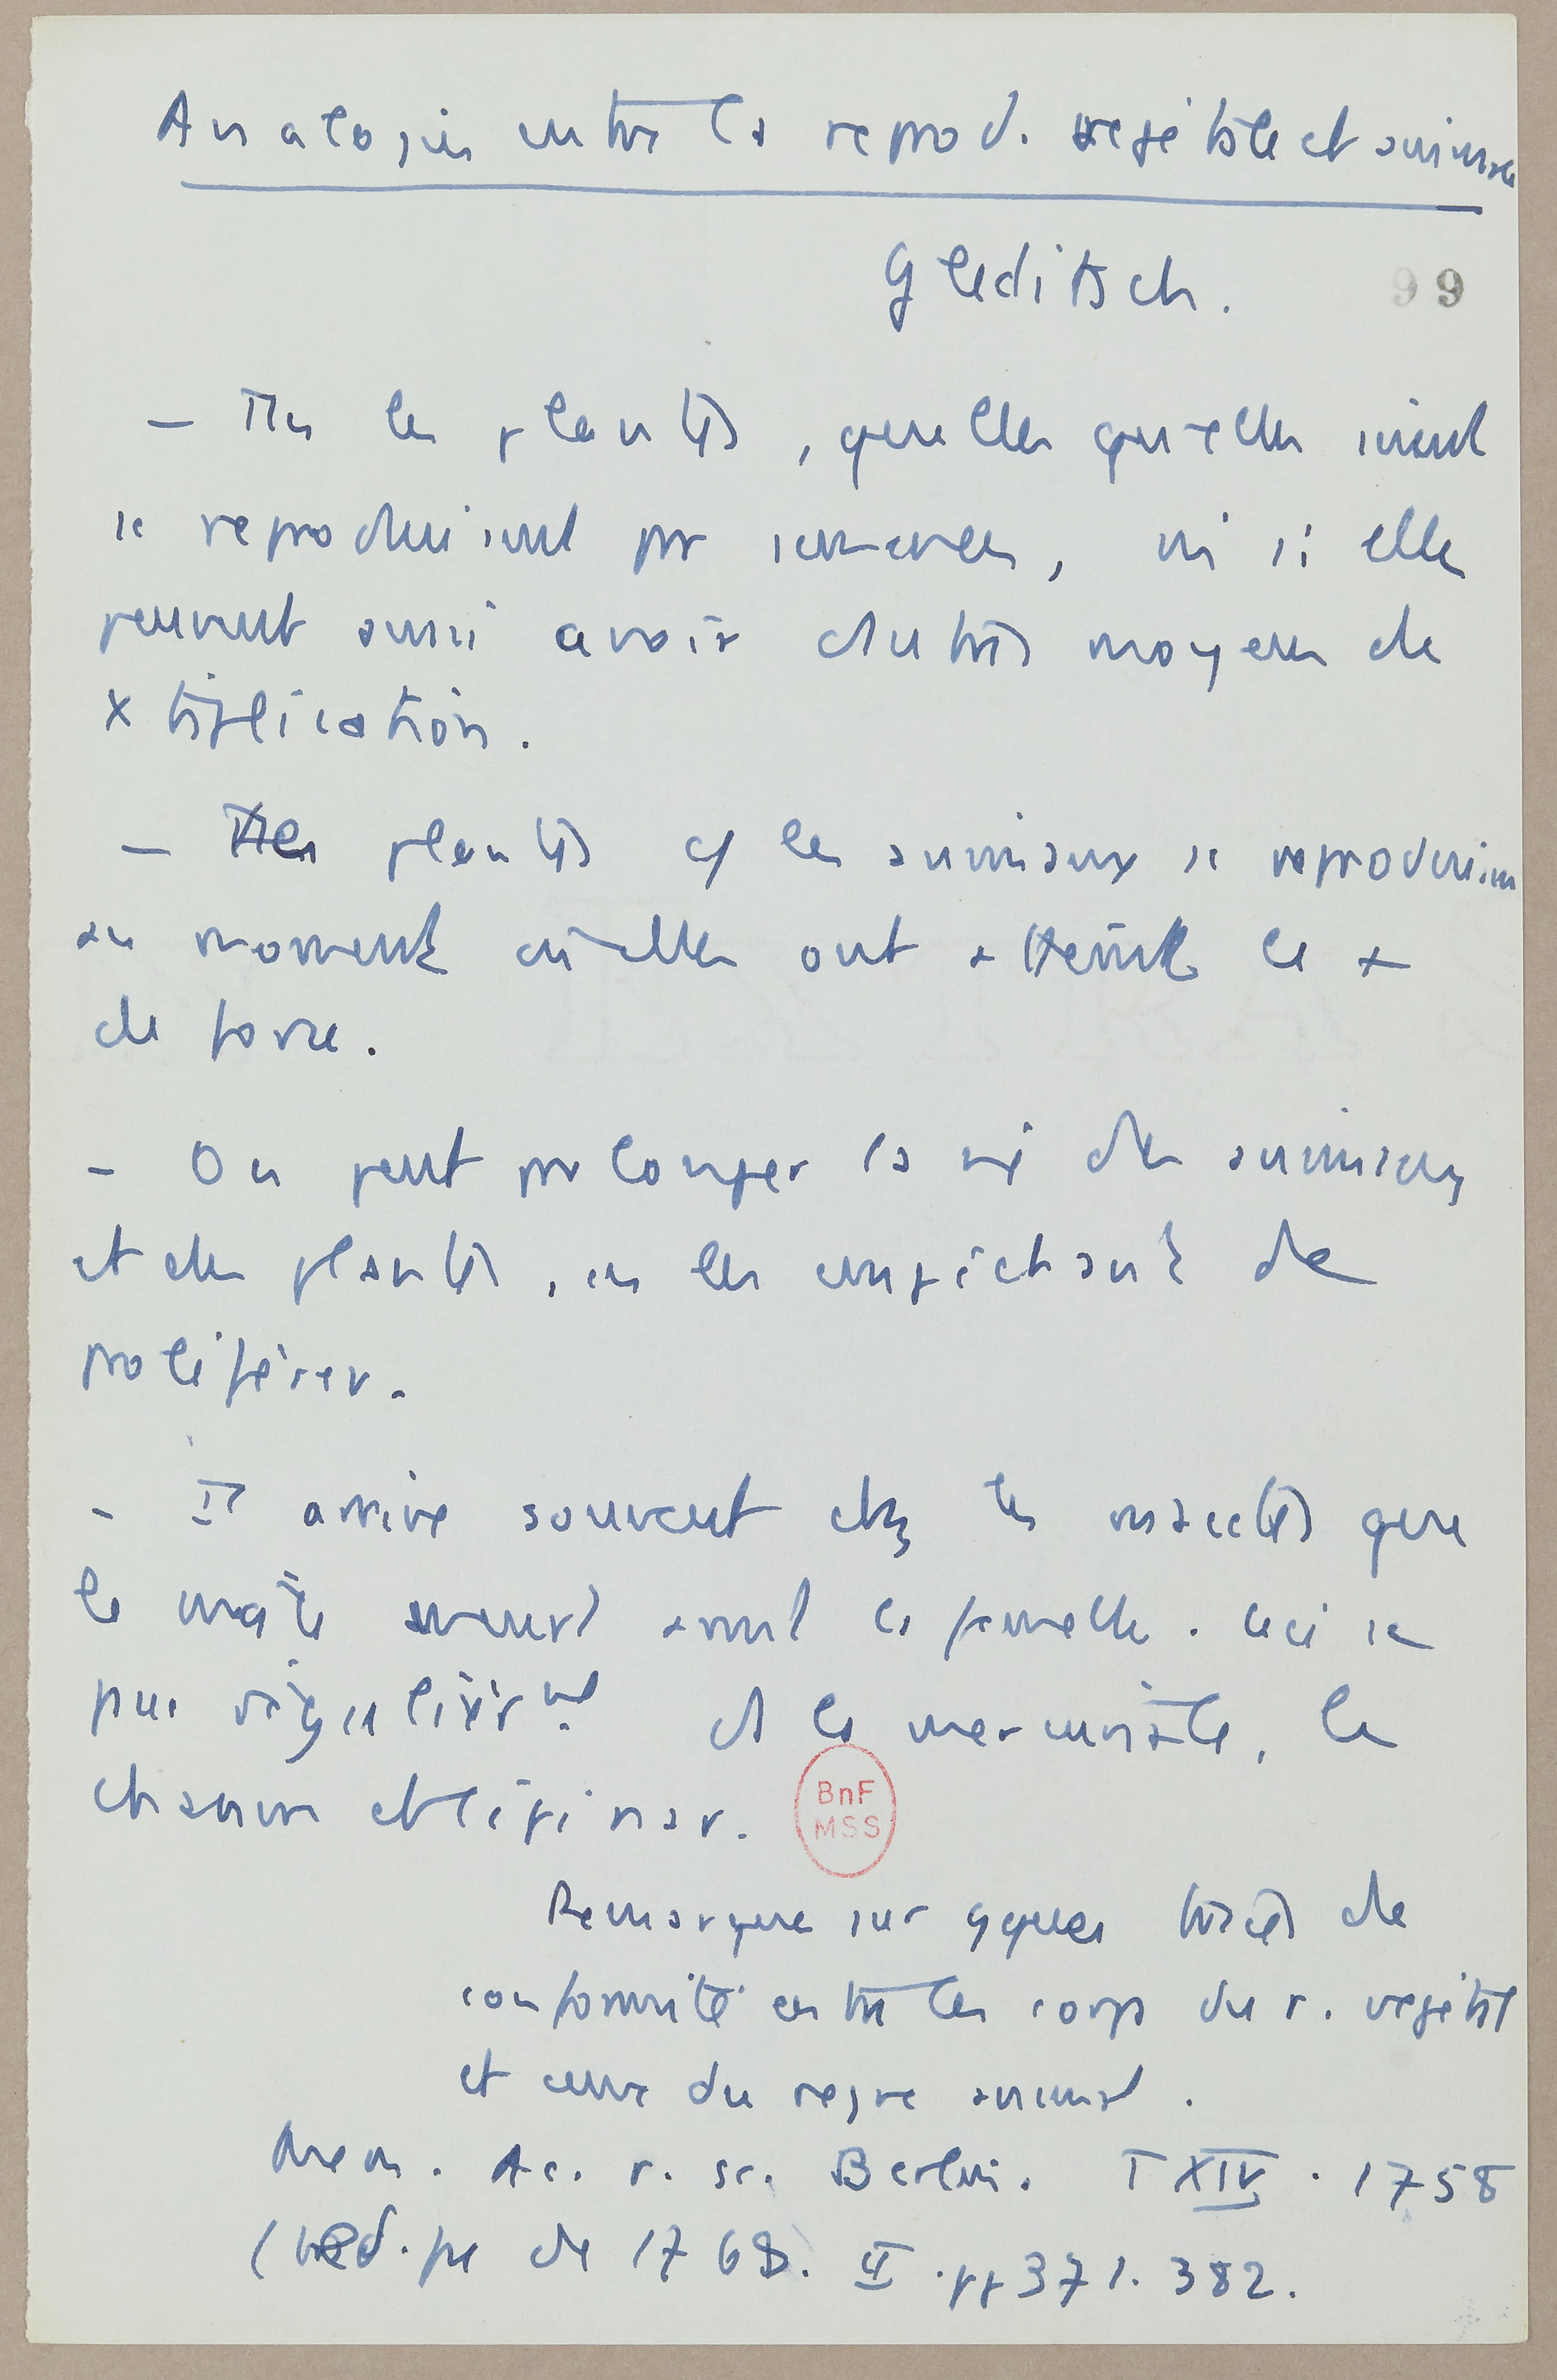 Analogies entre la reprod. végétale et animale
Gleditsch.
99
— Ttes les plantes, quelles qu'elles soient
se reproduisent par semences, mm si elles
peuvent aussi avoir d'autres moyens de
x tiplication.
— Les plantes cf les animaux se reproduisent
au moment où elles ont atteint le +
de force.
- On peut prolonger la vie des animaux
et des plantes, en les empêchant de
proliférer.
- Il arrive souvent chez les insectes que
le mâle meurt avant la femelle. Ceci se
régulièrmt
chanvre et l'épinar.
BnF
MSS
Remarques sur qques traces de
conformité entre les corps du r. végétal
et ceux du règne animal.
Mem. Ac. r. sc. Berlin. T XIV. 1758
(trad. fse de 1768. II. pp 371. 382.